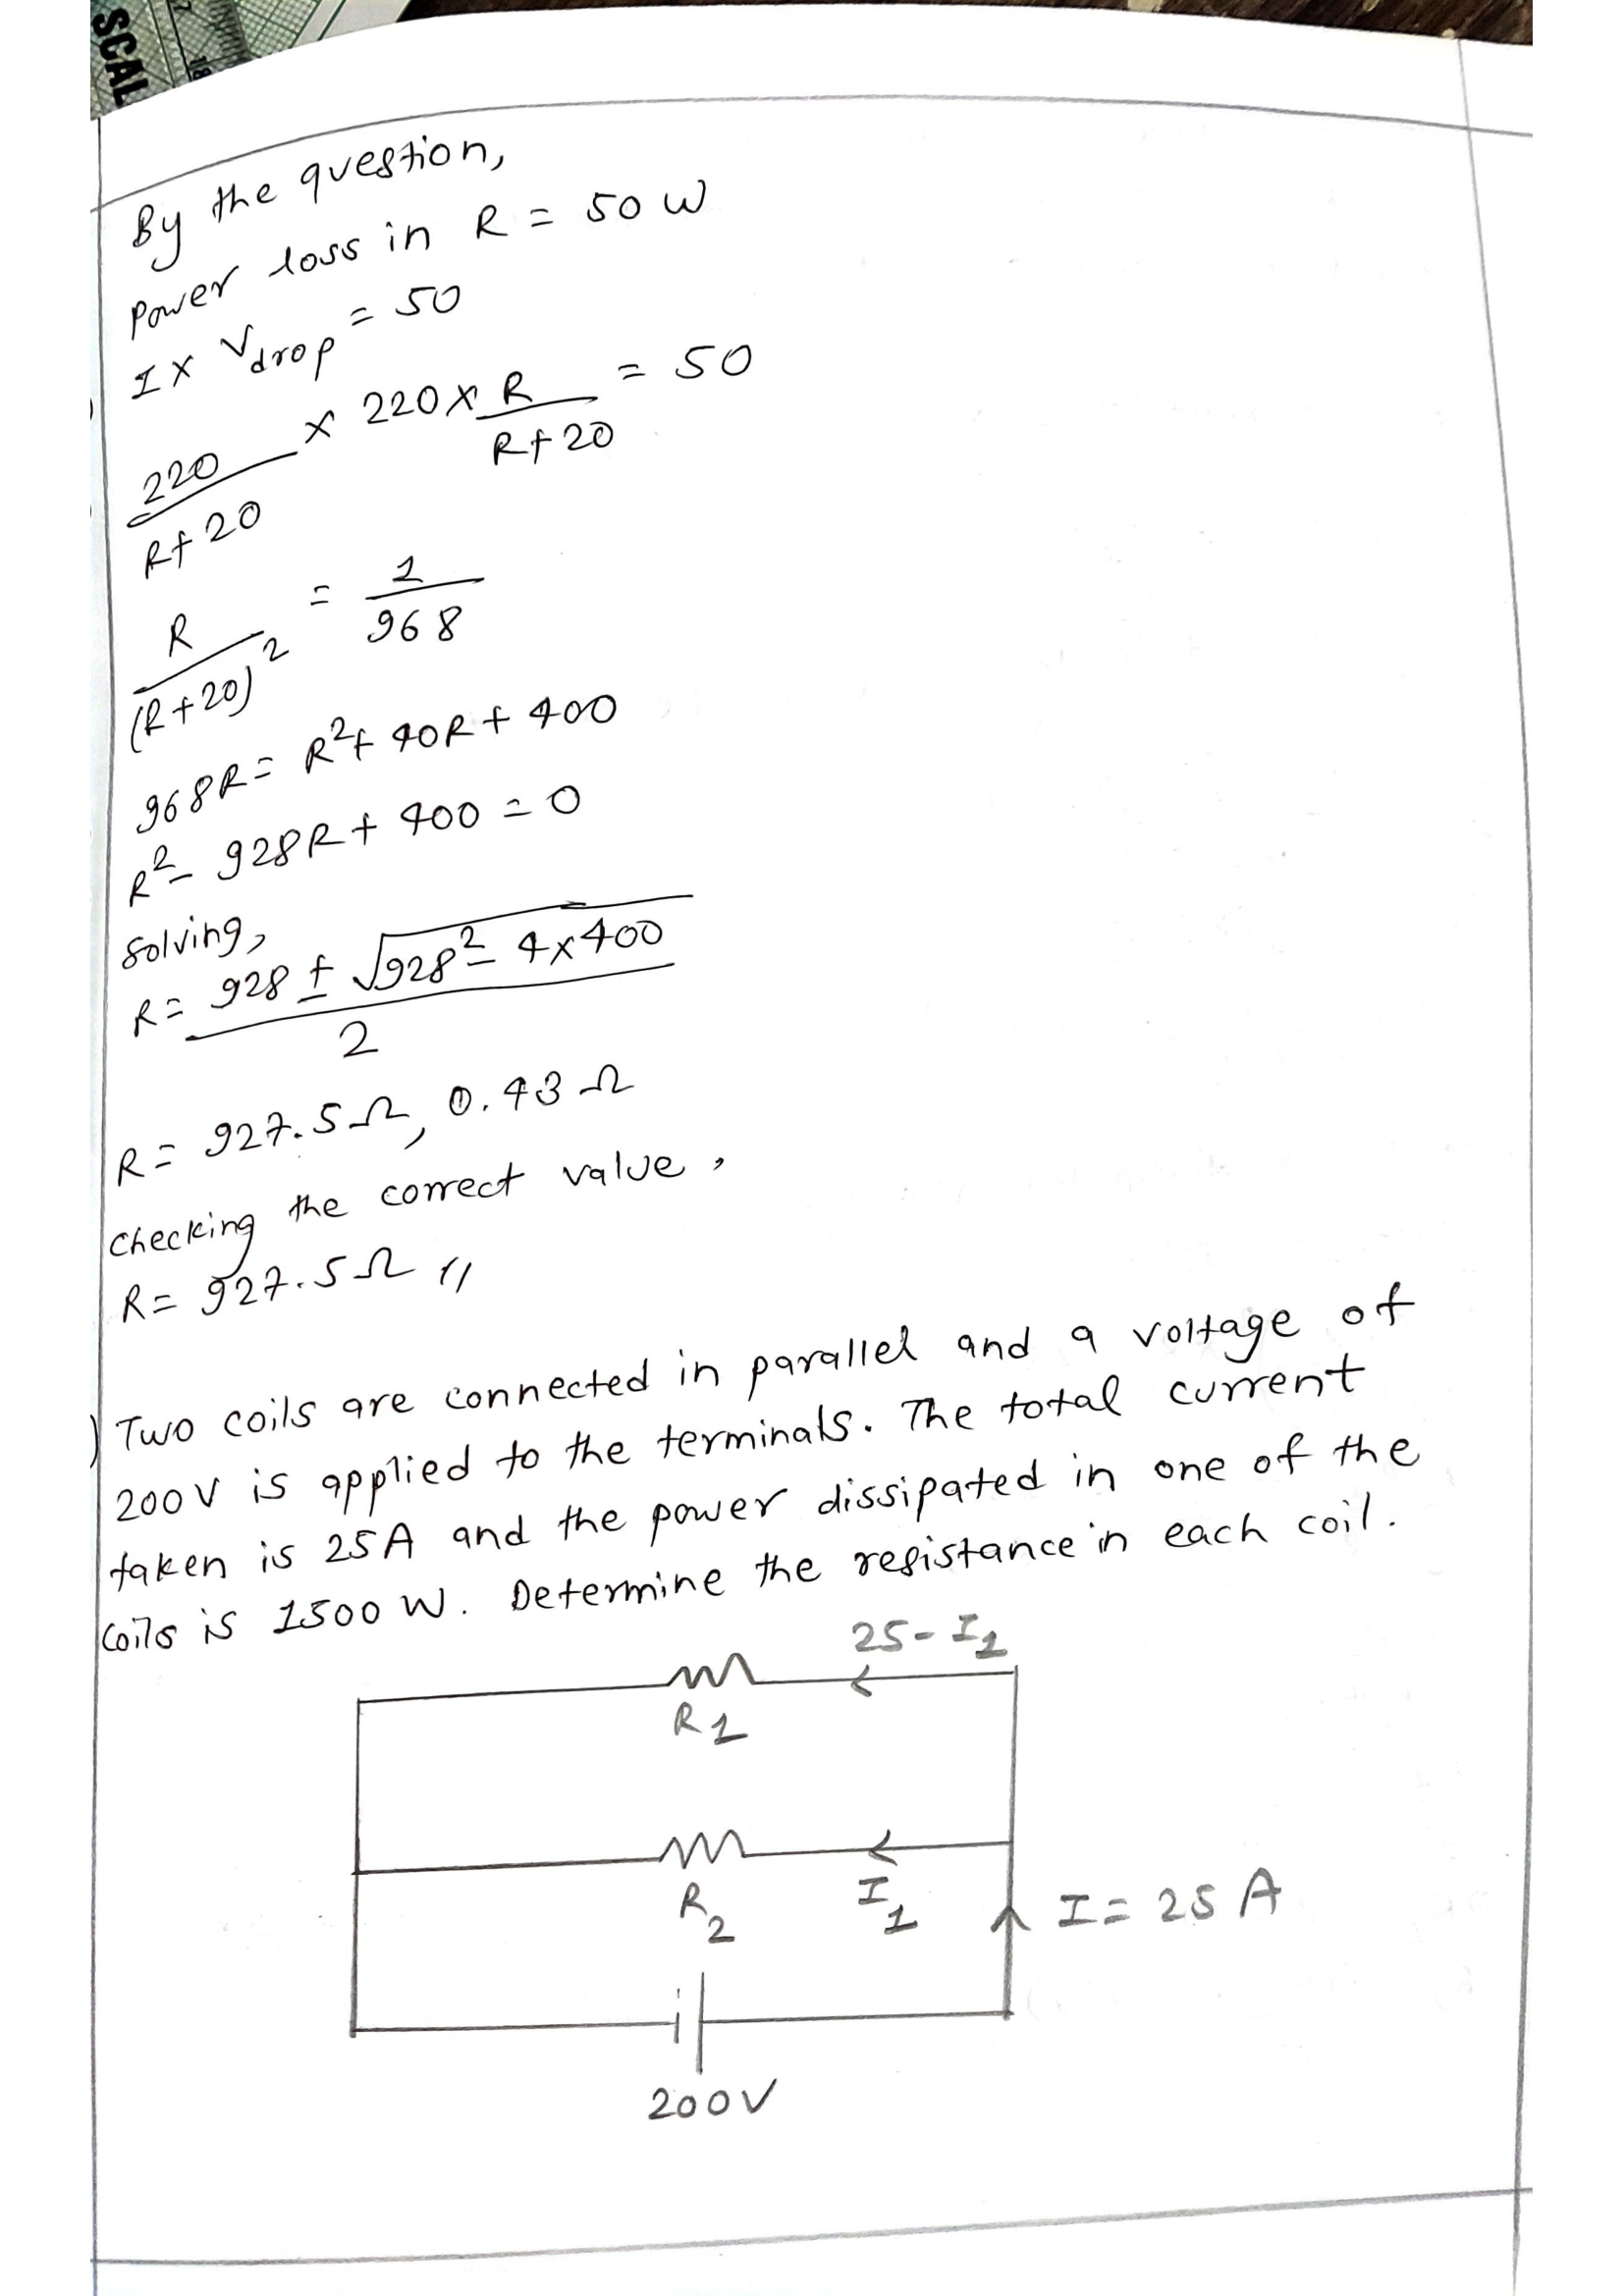 SCAL
18
By the question,
Power loss in R = 50 W
I x Vdrop = 50
220/(R+20) x 220 x R/(R+20) = 50
R/(R+20)² = 1/968
968R = R² + 40R + 400
R² - 928R + 400 = 0
Solving,
R = (928 ± √(928² - 4x400))/2
R = 927.5Ω, 0.43Ω
Checking the correct value,
R = 927.5Ω //
) Two coils are connected in parallel and a voltage of
200V is applied to the terminals. The total current
taken is 25A and the power dissipated in one of the
coils is 1500 W. Determine the resistance in each coil.
25 - I₁
R1
R₂
I₁
I = 25 A
200V